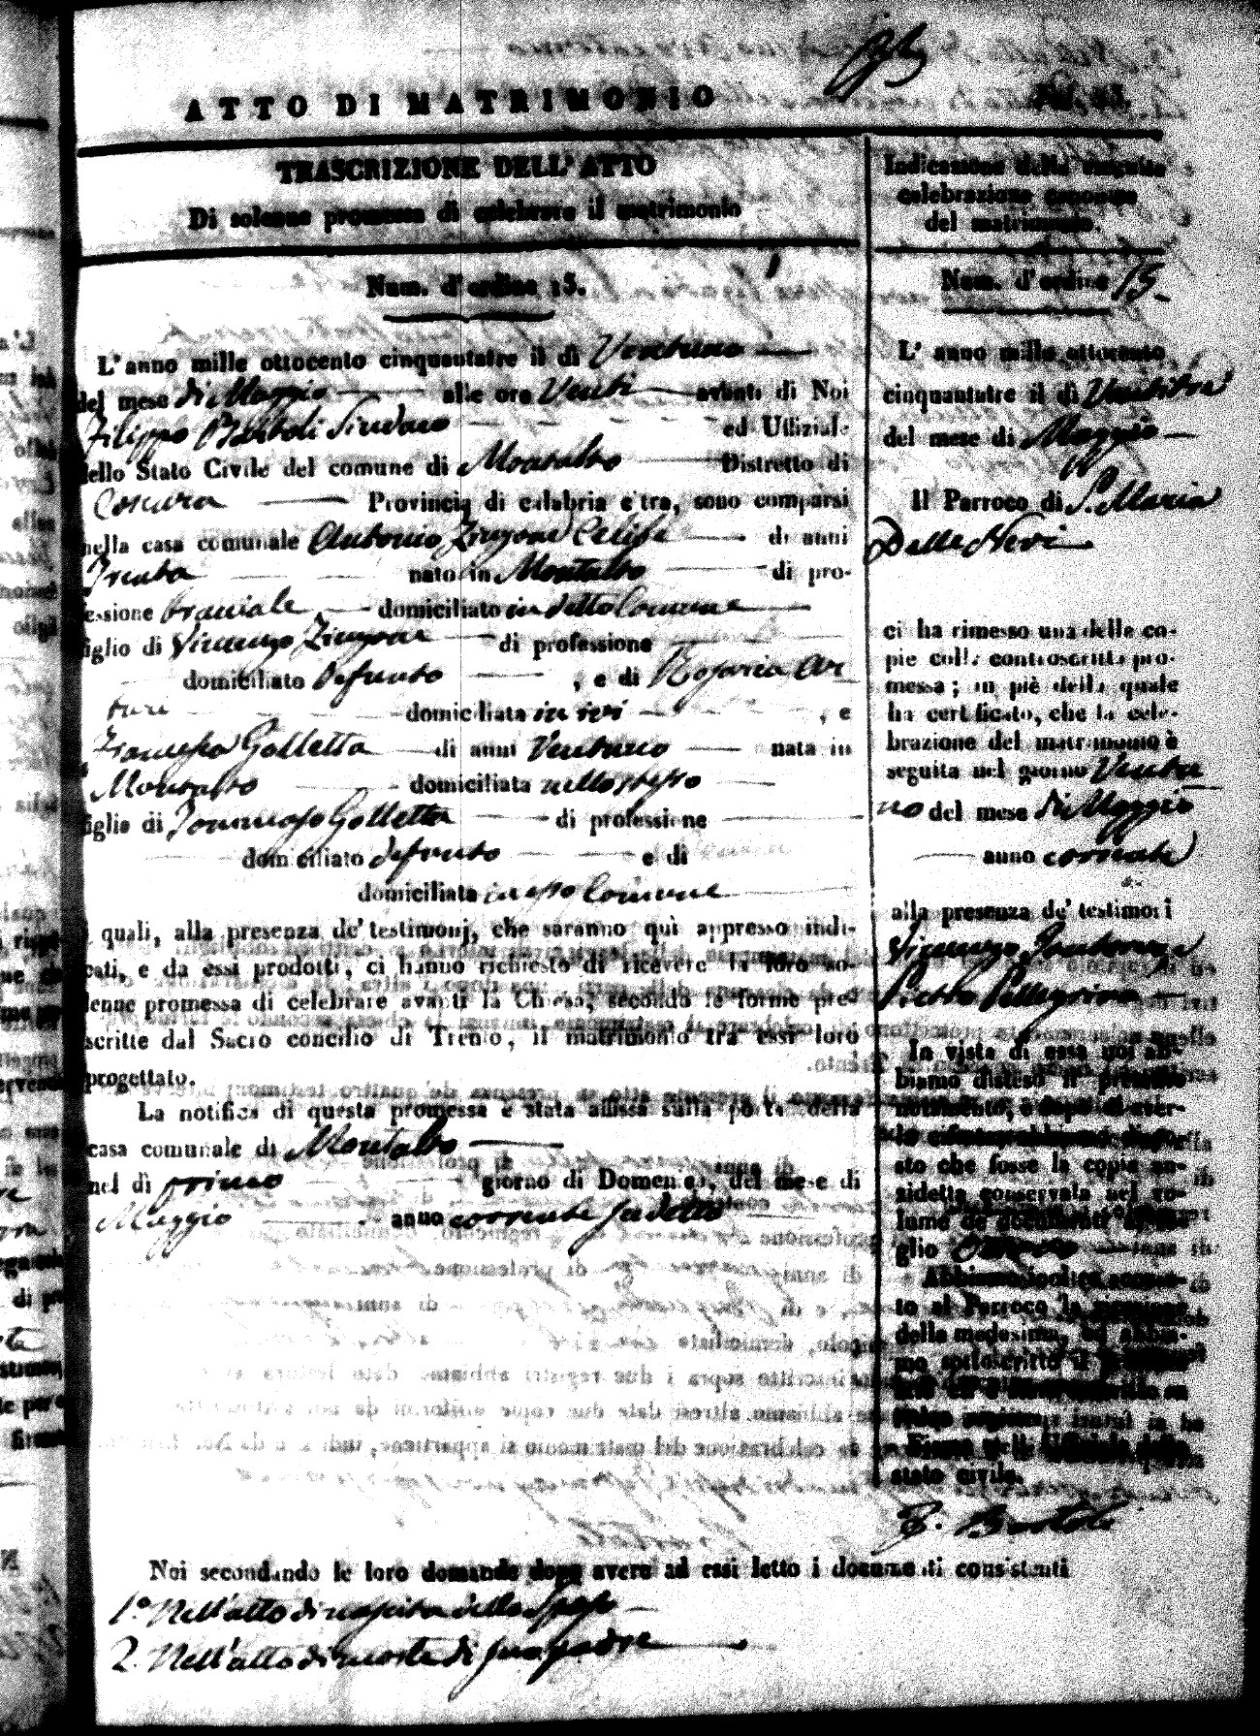 ATTO DI MATRIMONIO
TRASCRIZIONE DELL' ATTO
Di solenne promessa di celebrare il matrimonio
Num. d'ordine 15.
L'anno mille ottocento cinquantatre il dì Ventuno
del mese di Maggio alle ore Venti avanti di Noi
Filippo Bartoli Sindaco ed Uffizial.
dello Stato Civile del comune di Montalto Distretto di
Cosenza Provincia di calabria citra, sono comparsi
nella casa comunale Antonio Zingone Celibe di anni
Trenta nato in Montalto di pro-
fessione braciale domiciliato in detto Comune
figlio di Vincenzo Zingone di professione
domiciliato defunto , e di Rosaria Ar
turi domiciliata in ivi , e
Francesca Golletta di anni Ventuno nata in
Montalto domiciliata nello stesso
figlia di Tommaso Golletta di professione
domiciliato defunto e di
domiciliata in esso Comune
I quali, alla presenza de' testimonj, che saranno quì appresso indi-
cati, e da essi prodotti, ci hanno richiesto di ricevere la loro so-
lenne promessa di celebrare avanti la Chiesa, secondo le forme pre-
scritte dal Sacro concilio di Trento, il matrimonio tra essi loro
progettato.
La notifica di questa promessa è stata affissa sulla porta della
casa comunale di Montalto
nel dì primo giorno di Domenica, del mese di
Maggio anno corrente sudetto
Indicazione della seguita
celebrazione canonica
del matrimonio.
Num. d'ordine 15.
L' anno mille ottocento
cinquantatre il dì Ventitre
del mese di Maggio
Il Parroco di S. Maria
Delle Nevi
ci ha rimesso una delle co-
pie colla controscritta pro-
messa; in piè della quale
ha certificato, che la cele-
brazione del matrimonio è
seguita nel giorno Ventu
no del mese di Maggio
anno corrente
alla presenza de' testimori
Vincenzo
Pietro Pellegrino
In vista di essa noi ab-
biamo disteso il presente
notamento, e dopo di aver-
la
to che fosse la copia an-
zidetta conservata nel vo-
lume de documenti al fo-
glio
Abbiamo inoltre accusa-
to al Parroco la ricezione
della medesima, ed abbia-
mo sottoscritto il presente
stato civile.
F. Bartoli
Noi secondando le loro domande dopo avere ad essi letto i documenti consistenti
1.º Nell'atto di nascita dello Sposo
2. Nell'atto di morte di suo padre